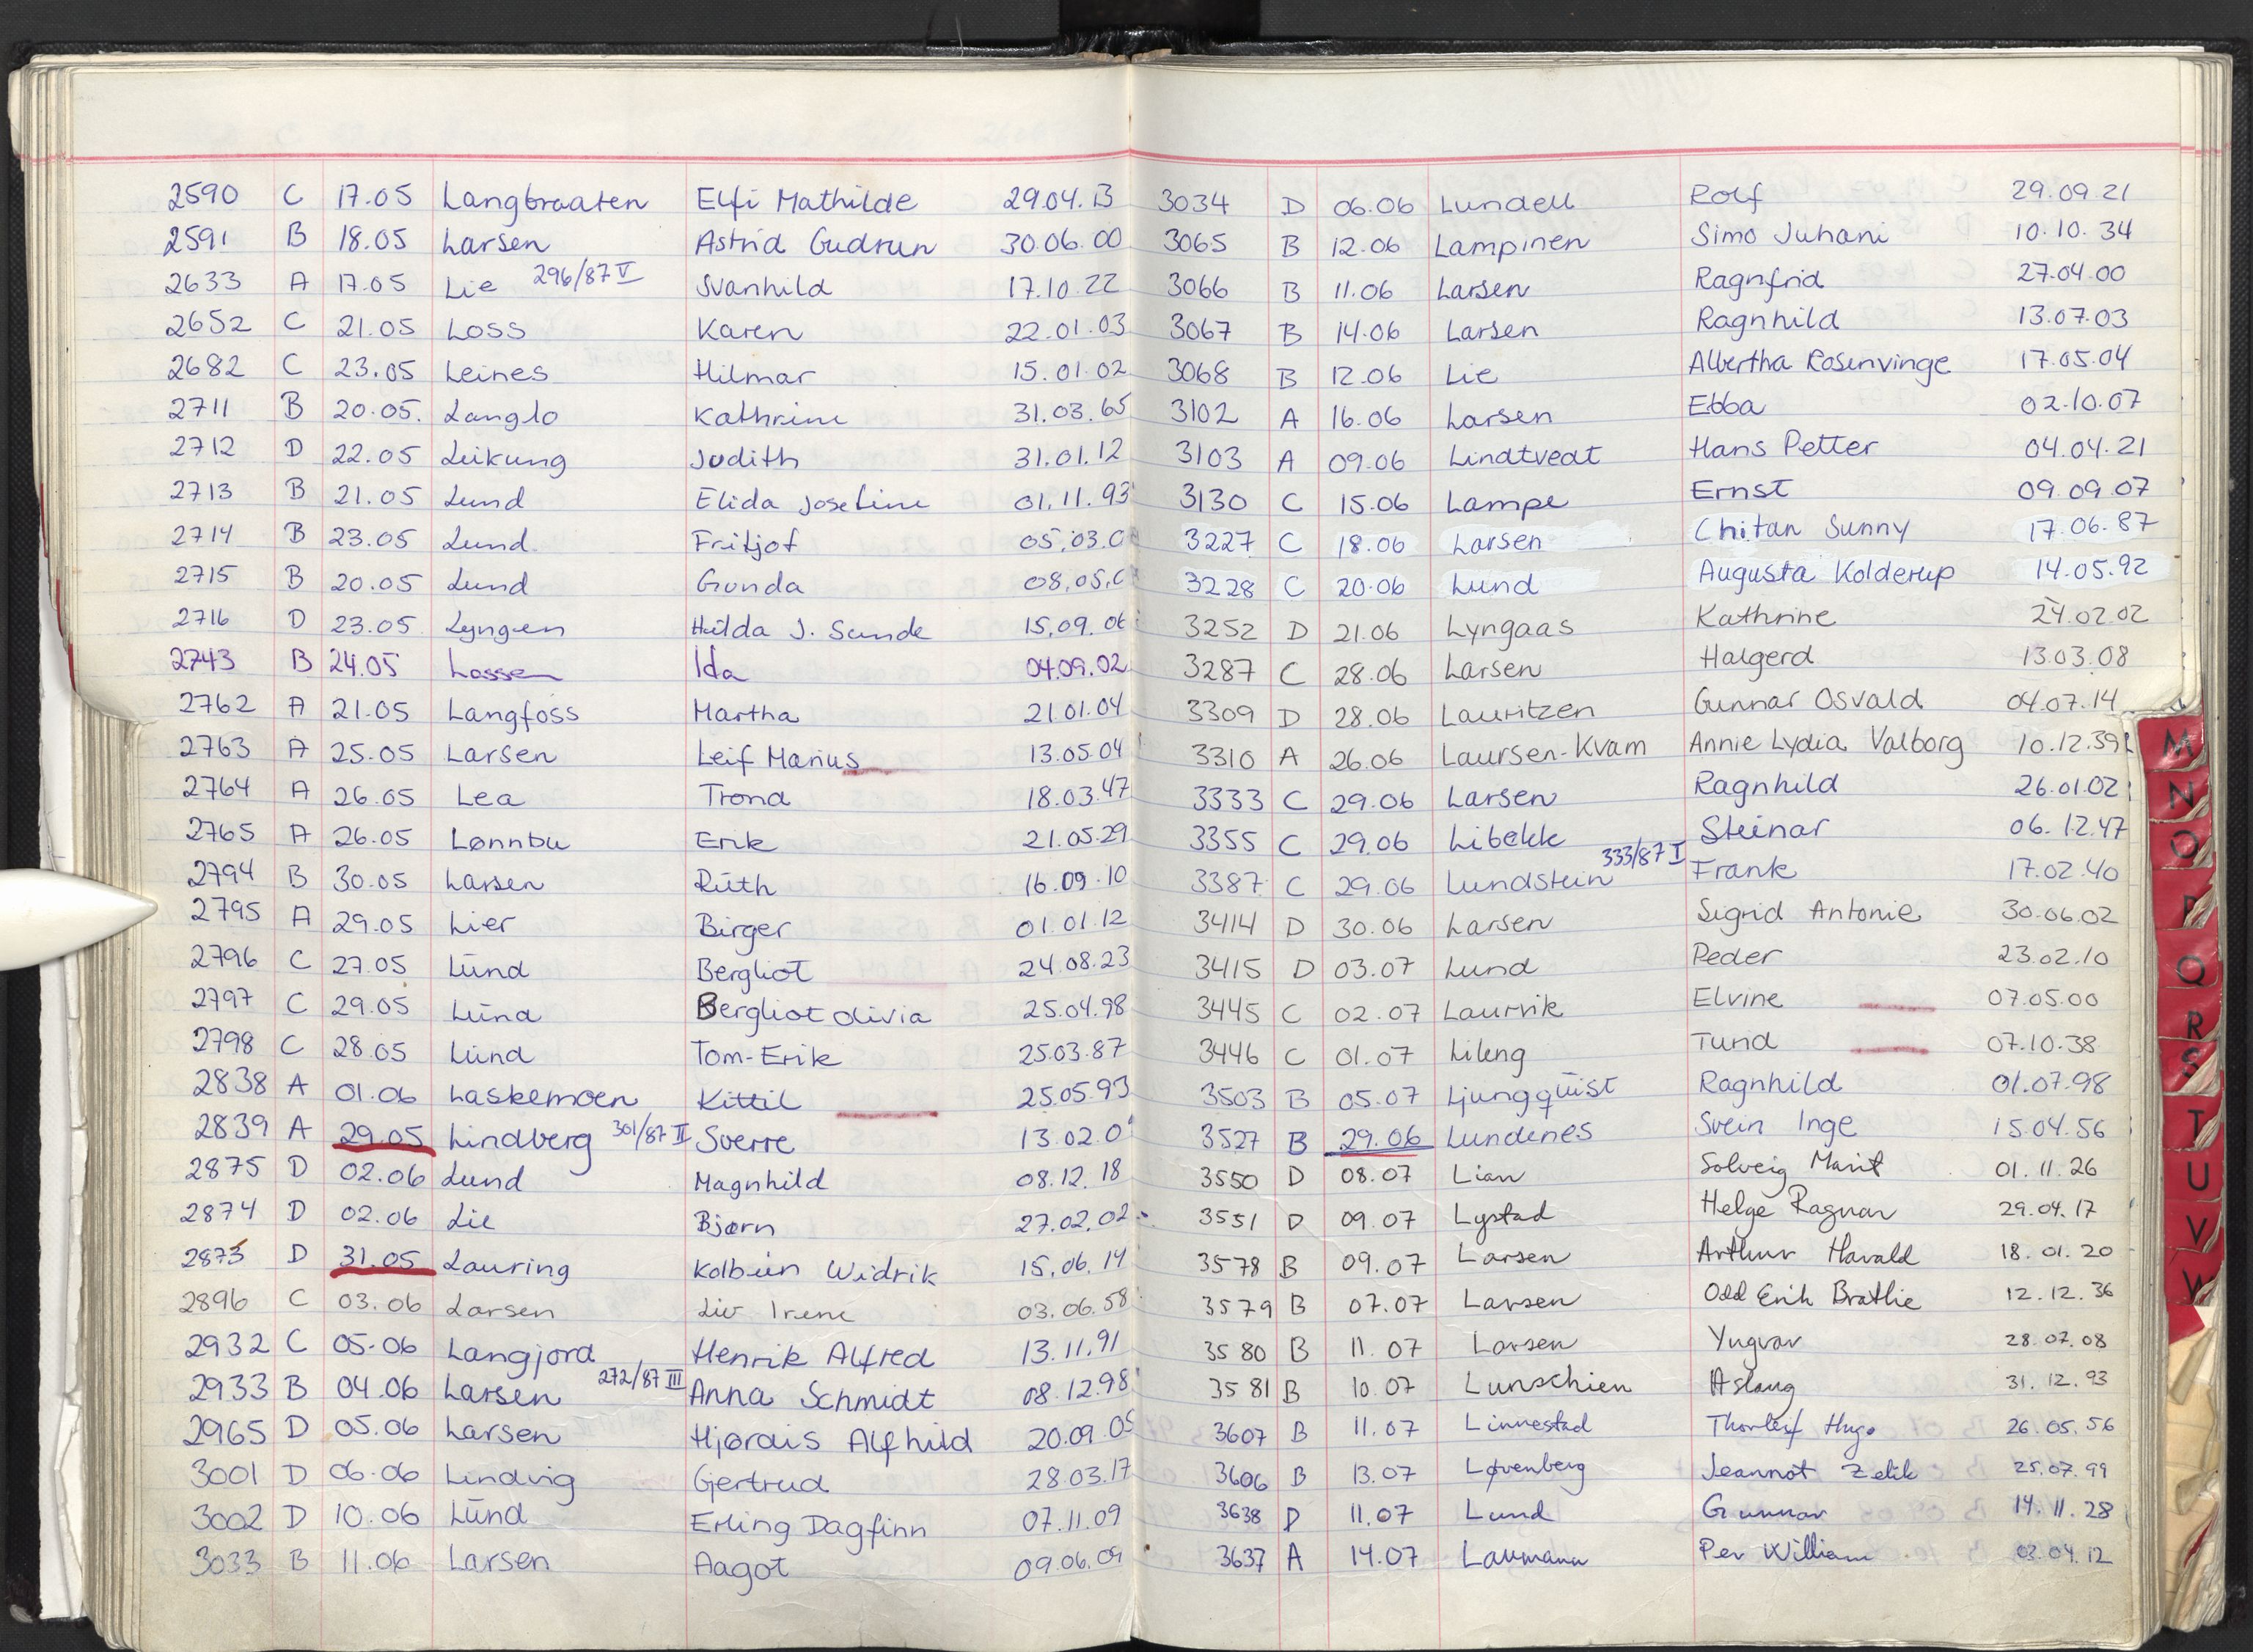 2590 C 17.05 Langbraaten Elfi Mathilde 29.04.13
2591 B 18.05 Larsen Astrid Gudrun 30.06.00
2633 A 17.05 Lie 296/87 V Svanhild 17.10.22
2652 C 21.05 Loss Karen 22.01.03
2682 C 23.05 Leines Hilmar 15.01.02
2711 B 20.05. Langlo Kathrine 31.03.65
2712 D 22.05 Leikung Judith 31.01.12
2713 B 21.05 Lund Elida Josefine 01.11.93
2714 B 23.05 Lund Fritjof 05.03.0
2715 B 20.05 Lund Gunda 08.05.0
2716 D 23.05 Lyngen Hilda J. Sunde 15.09.06
2743 B 24.05 Lossen Ida 04.09.02
2762 A 21.05 Langfoss Martha 21.01.04
2763 A 25.05 Larsen Leif Marius 13.05.04
2764 A 26.05 Lea Trond 18.03.47
2765 A 26.05 Lønnbu Erik 21.05.29
2794 B 30.05 Larsen Ruth 16.09.10
2795 A 29.05 Lier Birger 01.01.12
2796 C 27.05 Lund Bergliot 24.08.23
2797 C 29.05 Lund Bergliot Olivia 25.04.98
2798 C 28.05 Lund Tom-Erik 25.03.87
2838 A 01.06 Laskemoen Kittil 25.05.93
2839 A 29.05 Lindberg 301/87 II Sverre 13.02.0
2875 D 02.06 Lund Magnhild 08.12.18
2874 D 02.06 Lie Bjørn 27.02.02
2873 D 31.05 Lauring Kolbein Widrik 15.06.14
2896 C 03.06 Larsen Liv Irene 03.06.58
2932 C 05.06 Langjord Henrik Alfred 13.11.91
2933 B 04.06 Larsen 272/87 III Anna Schmidt 08.12.98
2965 D 05.06 Larsen Hjørdis Alfhild 20.09.05
3001 D 06.06 Lindvig Gjertrud 28.03.17
3002 D 10.06 Lund Erling Dagfinn 07.11.09
3033 B 11.06 Larsen Aagot 09.06.09
3034 D 06.06 Lundell Rolf 29.09.21
3065 B 12.06 Lampinen Simo Juhani 10.10.34
3066 B 11.06 Larsen Ragnfrid 27.04.00
3067 B 14.06 Larsen Ragnhild 13.07.03
3068 B 12.06 Lie Albertha Rosenvinge 17.05.04
3102 A 16.06 Larsen Ebba 02.10.07
3103 A 09.06 Lindtvedt Hans Petter 04.04.21
3130 C 15.06 Lampe Ernst 09.09.07
3227 C 18.06 Larsen Chitan Sunny 17.06.87
3228 C 20.06 Lund Augusta Kolderup 14.05.92
3252 D 21.06 Lyngaas Kathrine 24.02.02
3287 C 28.06 Larsen Halgerd 13.03.08
3309 D 28.06 Lauritzen Gunnar Osvald 04.07.14
3310 A 26.06 Laursen-Kvam Annie Lydia Valborg 10.12.39
3333 C 29.06 Larsen Ragnhild 26.01.02
3355 C 29.06 Libekk Steinar 06.12.47
3387 C 29.06 Lundstein 333/87 I Frank 17.02.40
3414 D 30.06 Larsen Sigrid Antonie 30.06.02
3415 D 03.07 Lund Peder 23.02.10
3445 C 02.07 Laurvik Elvine 07.05.00
3446 C 01.07 Lileng Turid 07.10.38
3503 B 05.07 Ljungquist Ragnhild 01.07.98
3527 B 29.06 Lundenes Svein Inge 15.04.56
3550 D 08.07 Lian Solveig Marit 01.11.26
3551 D 09.07 Lystad Helge Ragnar 29.04.17
3578 B 09.07 Larsen Arthur Harald 18.01.20
3579 B 07.07 Larsen Odd Erik Brathe 12.12.36
3580 B 11.07 Larsen Yngvar 28.07.08
3581 B 10.07 Lunschien Aslaug 31.12.93
3607 B 11.07 Linnestad Thorleif Hugo 26.05.56
3606 B 13.07 Løvenberg Jeannot Zelik 25.07.99
3638 D 11.07 Lund Gunnar 14.11.28
3637 A 14.07 Laumann Per William 03.04.12
M
N
O
P
Q
R
S
T
U
V
W